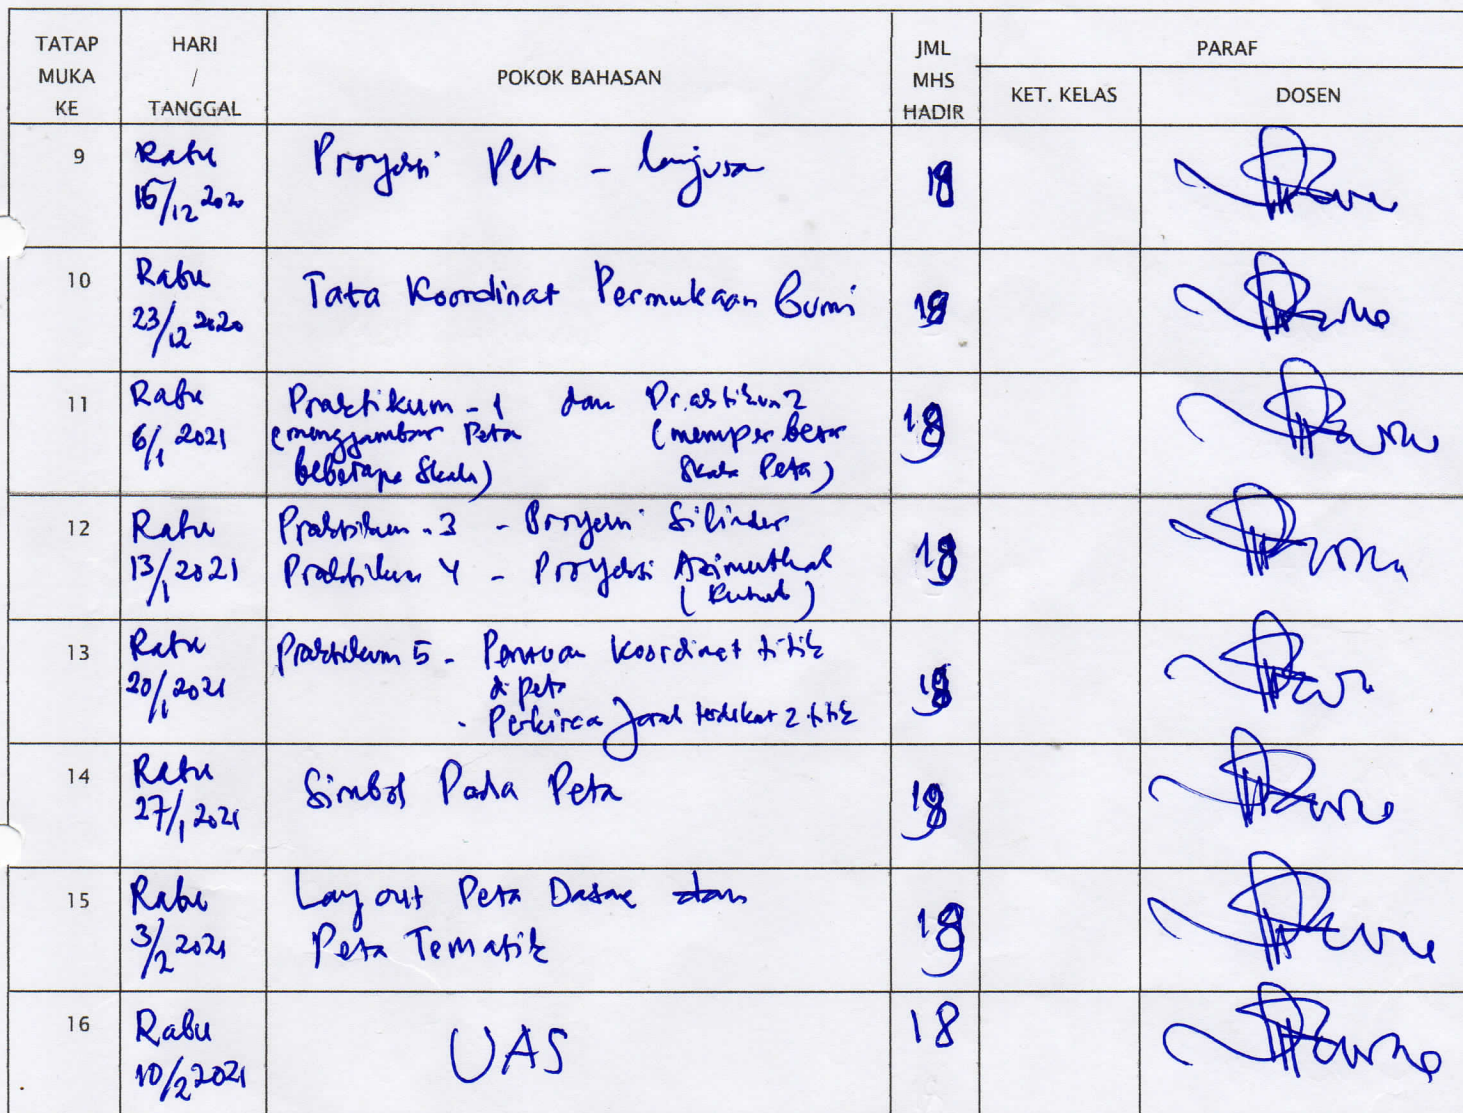 TATAP MUKA KE
HARI / TANGGAL
POKOK BAHASAN
JML MHS HADIR
PARAF
KET. KELAS
DOSEN
9
Rabu
16/12 2020
Proyeksi Peta - lanjutan
18
10
Rabu
23/12 2020
Tata Koordinat Permukaan Bumi
18
11
Rabu
6/1 2021
Praktikum - 1 dan Praktikum 2
(menggambar Peta (memperbesar
beberapa Skala) Skala Peta)
18
12
Rabu
13/1 2021
Praktikum - 3 - Proyeksi Silinder
Praktikum 4 - Proyeksi Azimuthal
18
13
Rabu
20/1 2021
Praktikum 5 - Koordinat titik
di peta
- Perkiraan Jarak terdekat 2 titik
18
14
Rabu
27/1 2021
Simbol Pada Peta
18
15
Rabu
3/2 2021
Lay out Peta Dasar dan
Peta Tematik
18
16
Rabu
10/2 2021
UAS
18